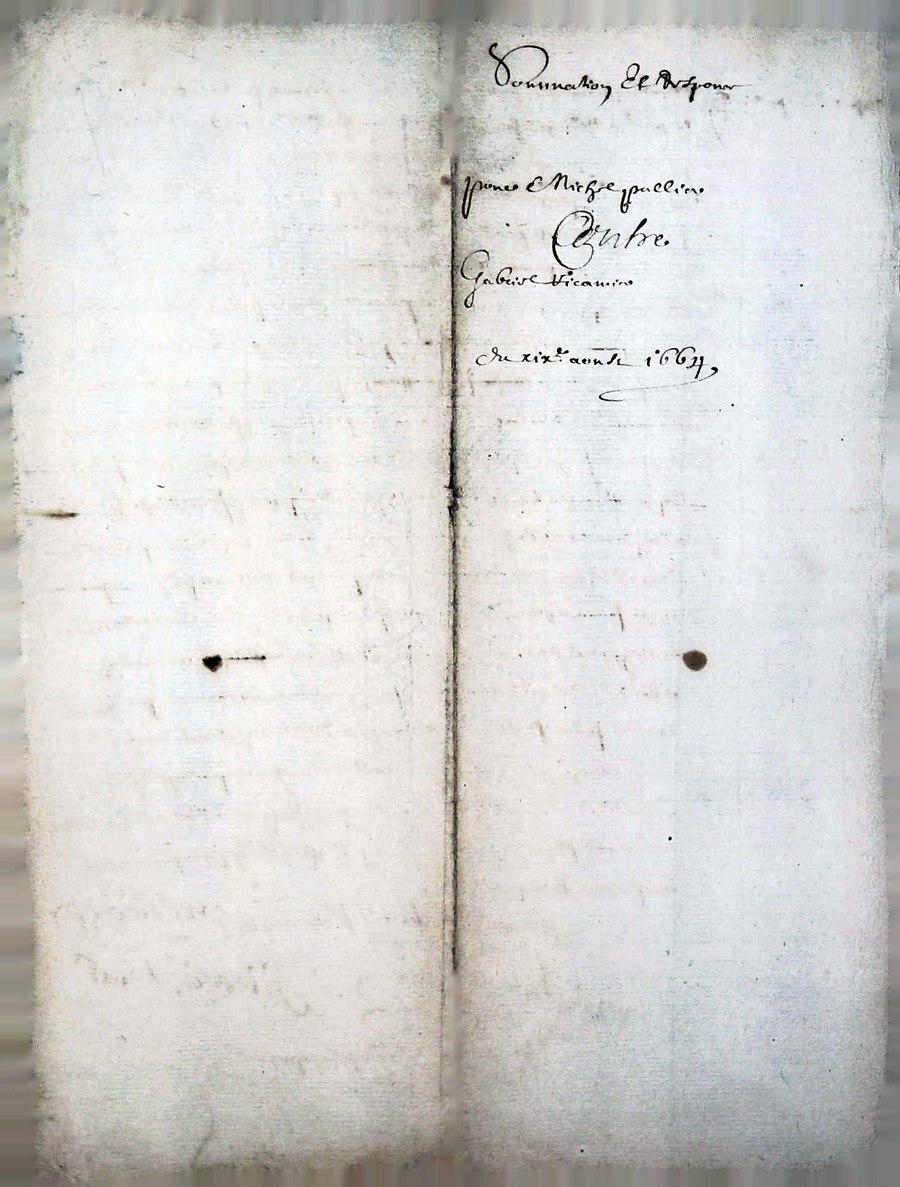 Sommation Et Response
pour Michel pallier
Contre
Gabriel
du xixe aoust 1664